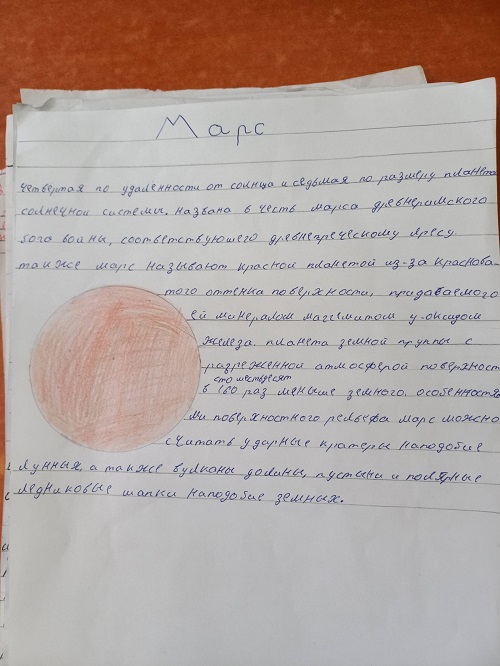 Марс
четвертая по удаленности от солнца и седьмая по размеру планета
солнечной системы. названа в честь марса древнеримского
бога войны, соответствующего древнегреческому Аресу
также марс называют красной планетой из-за краснова-
того оттенка поверхности, придаваемого
ей минералом маггемитом γ-оксидом
железа. планета земной группы с
разреженной атмосферой поверхность
сто шестьдесят
в 160 раз меньше земного. особенностя
ми поверхностного рельефа марс можно
считать ударные кратеры наподобие
лунных, а также вулканы долины, пустыни и полярные
ледниковые шапки наподобие земных.